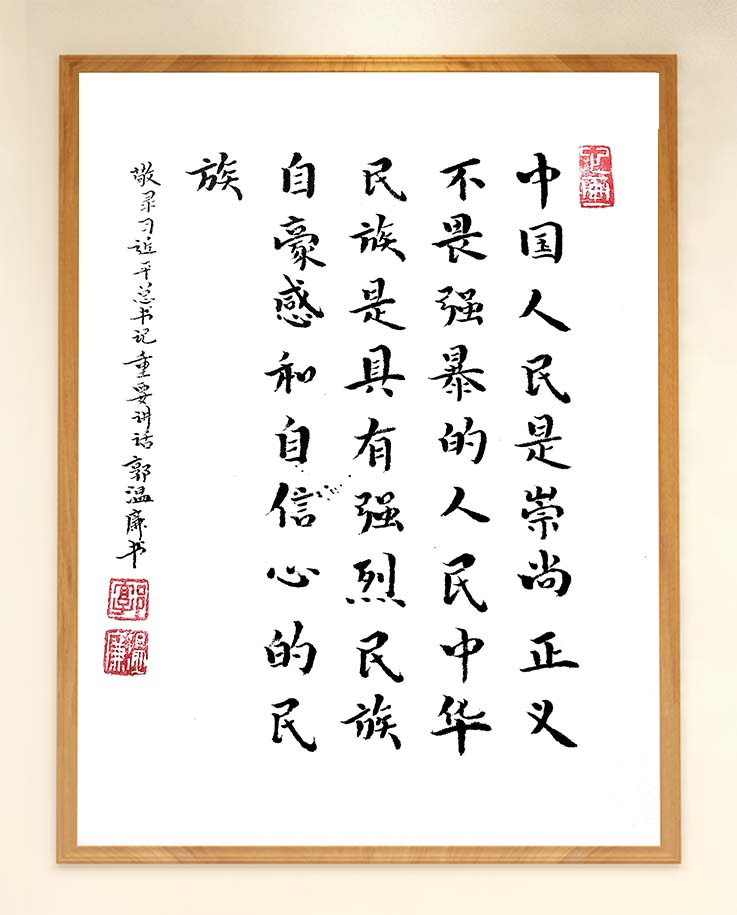 中国人民是崇尚正义
不畏强暴的人民中华
民族是具有强烈民族
自豪感和自信心的民
族
敬录习近平总书记重要讲话郭温廉书